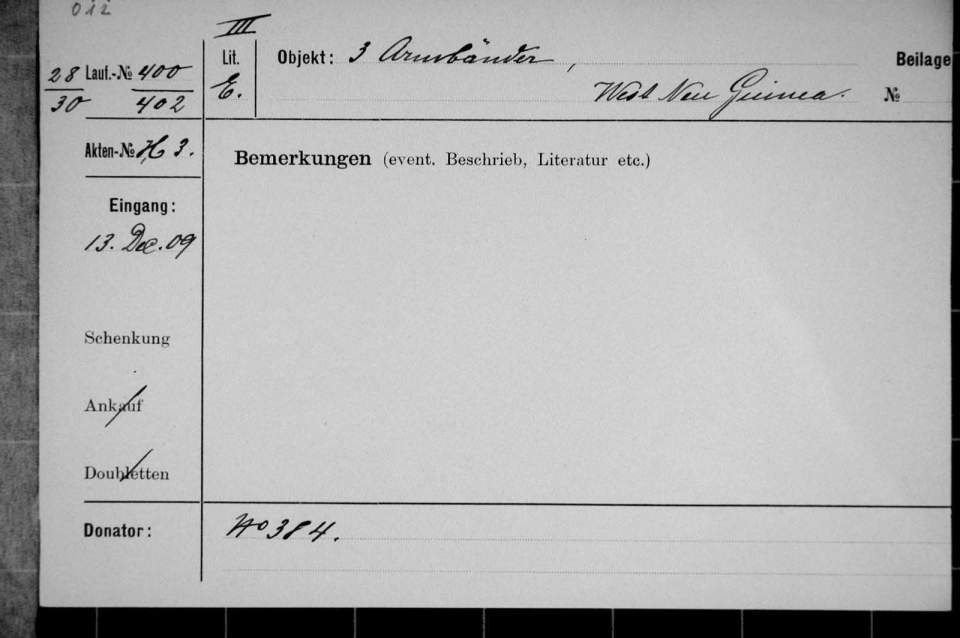 012
III
28 Lauf.-№ 400 Lit. Objekt: 3 Armbänder, Beilage
30 402 E. West Neu Guinea. №
Akten-№ H 3.
Bemerkungen (event. Beschrieb, Literatur etc.)
Eingang:
13. Dec. 09
Schenkung
Ankauf
Doubletten
Donator: No 384.